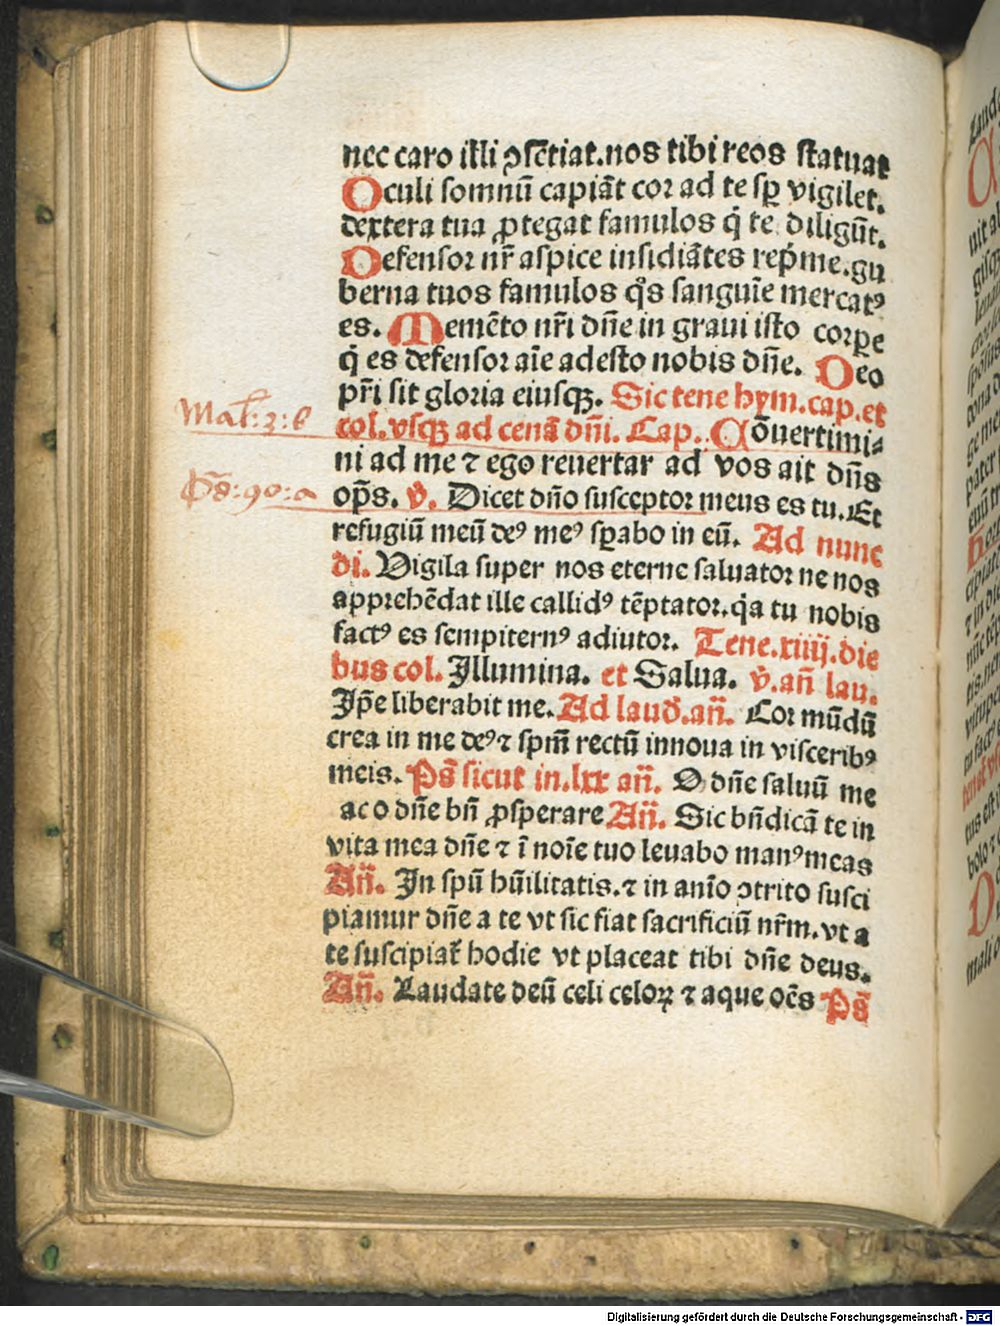 nec caro illi ꝯsẽtiat.nos tibi reos statuat
Oculi somnũ capiãt cor ad te sꝑ vigilet.
dextera tua ꝓtegat famulos q̇ te diligũt.
Defensor nr̃ aspice insidiãtes rep̃me.gu
berna tuos famulos q̃s sanguĩe mercatꝰ
es. Memẽto nr̃i dñe in graui isto corꝑe
q̇ es defensor aĩe adesto nobis dñe. Deo
pr̃i sit gloria eiusqꝫ. Sic tene hym.cap.et
Mal: 3: b
col.vsqꝫ ad cenã dñi. Cap. Cõuertimi⸗
ni ad me ⁊ ego reuertar ad vos ait dñs
Ps: 90: a
op̃s. v̇. Dicet dño susceptor meus es tu. Et
refugiũ meũ deꝰ meꝰ sꝑabo in eũ. Ad nunc
di. Vigila super nos eterne saluator ne nos
apprehẽdat ille callidꝰ tẽptator.q̇a tu nobis
factꝰ es sempiternꝰ adiutor. Tene.xiiij.die
bus col. Illumina. et Salua. v̇.añ lau.
Ip̃e liberabit me. Ad laud̃.añ. Cor mũdũ
crea in me deꝰ ⁊ spm̃ rectũ innoua in visceribꝰ
meis. Ps̃ sicut in.lxx añ. O dñe saluũ me
ac o dñe bñ ꝓsperare Añ. Sic bñdicã te in
vita mea dñe ⁊ ĩ noĩe tuo leuabo manꝰ meas
Añ. In spũ hũilitatis.⁊ in anĩo ꝯtrito susci
piamur dñe a te vt sic fiat sacrificiũ nr̃m.vt a
te suscipiat̃ hodie vt placeat tibi dñe deus.
Añ. Laudate deũ celi celoꝝ ⁊ aque oẽs Ps̃
Digitalisierung gefördert durch die Deutsche Forschungsgemeinschaft - DFG